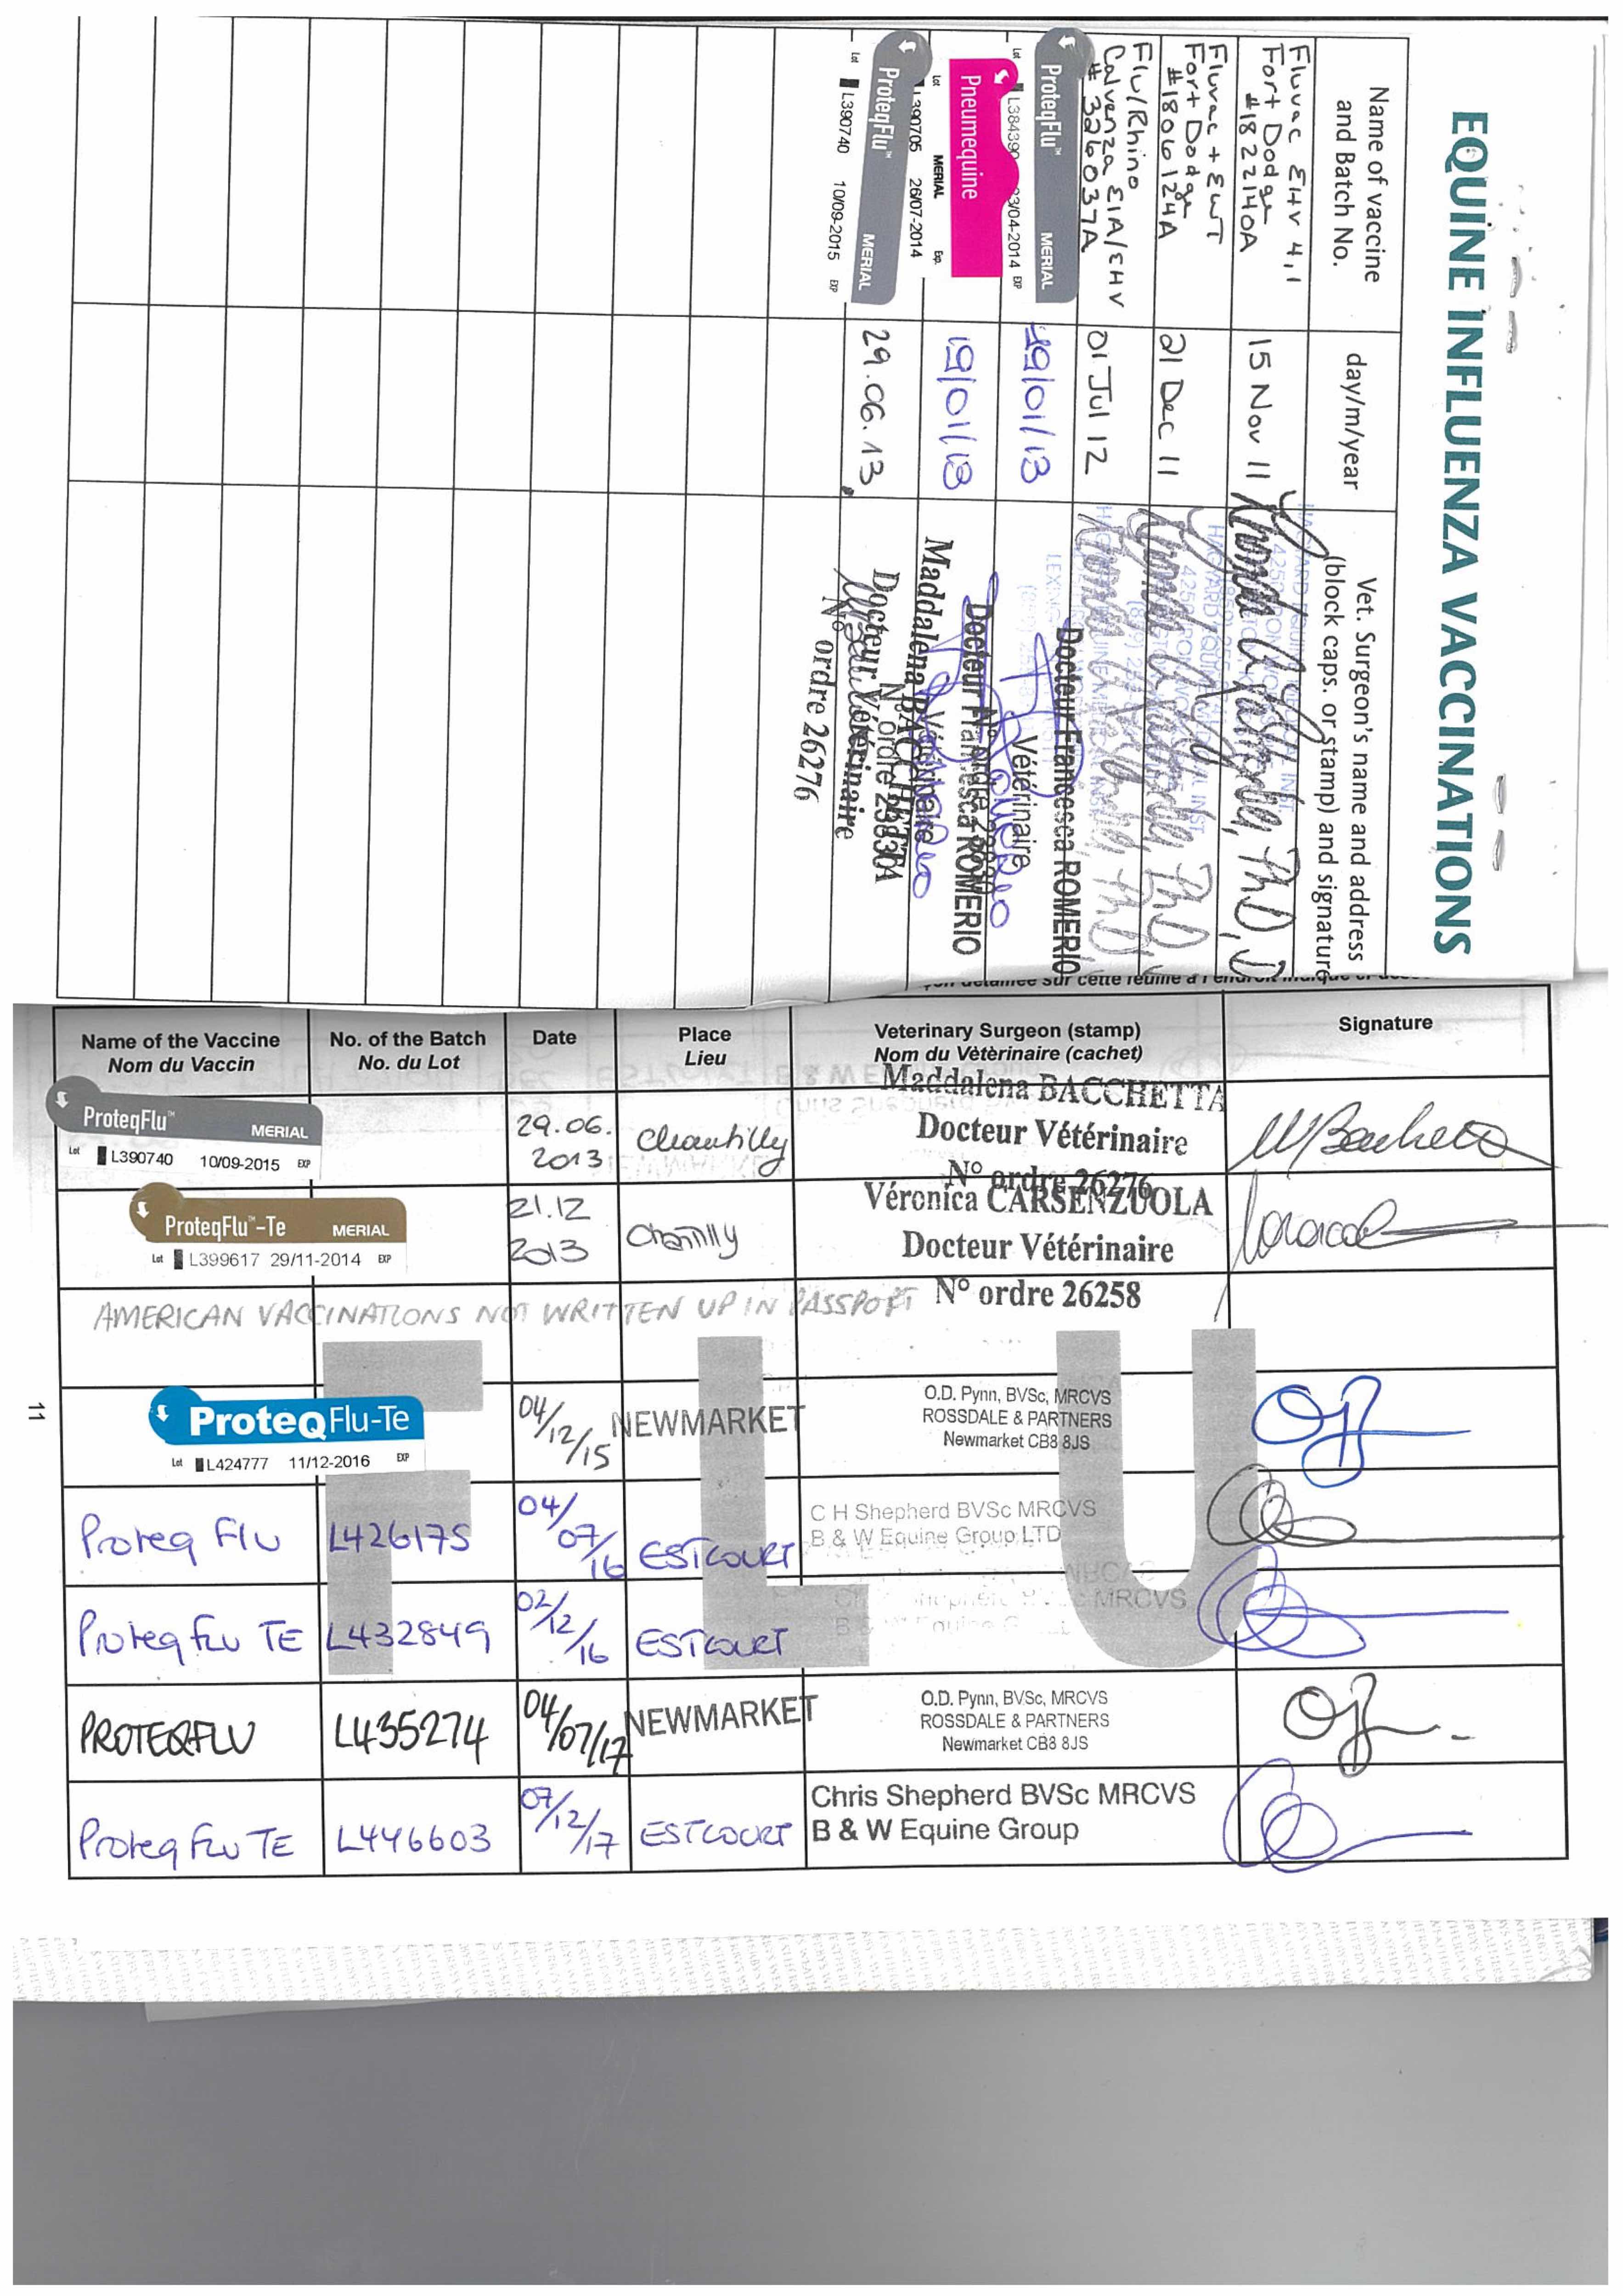 EQUINE INFLUENZA VACCINATIONS
Name of vaccine
and Batch No.
day/m/year
Vet. Surgeon's name and address
(block caps. or stamp) and signature
Fluvac EHV 4,1
Fort Dodge
#1822140A
15 Nov 11
Fluvac + EWT
Fort Dodge
#1806124A
21 Dec 11
Flu/Rhino
Calvenza EIA/EHV
# 326037A
01 Jul 12
ProteqFlu™ MERIAL
Lot L384390 03/04-2014 EXP
19/01/13
Docteur Francesca ROMERIO
Vétérinaire
Pneumequine
MERIAL
Lot L390705 26/07-2014 Exp.
19/01/13
Docteur Francesca ROMERIO
Vétérinaire
ProteqFlu™ MERIAL
Lot L390740 10/09-2015 EXP
29.06.13
Maddalena BACCHETTA
Docteur Vétérinaire
N° ordre 26276
Name of the Vaccine
Nom du Vaccin
No. of the Batch
No. du Lot
Date
Place
Lieu
Veterinary Surgeon (stamp)
Nom du Vétèrinaire (cachet)
Signature
ProteqFlu™ MERIAL
Lot L390740 10/09-2015 EXP
29.06.
2013
Chantilly
Maddalena BACCHETTA
Docteur Vétérinaire
N° ordre 26276
ProteqFlu™-Te MERIAL
Lot L399617 29/11-2014 EXP
21.12
2013
Chantilly
Véronica CARSENZUOLA
Docteur Vétérinaire
N° ordre 26258
AMERICAN VACCINATIONS NOT WRITTEN UP IN PASSPORT
FLU
ProteqFlu-Te
Lot L424777 11/12-2016 EXP
04/12/15
NEWMARKET
O.D. Pynn, BVSc, MRCVS
ROSSDALE & PARTNERS
Newmarket CB8 8JS
Proteq Flu
L426175
04/07/16
ESTCOURT
C H Shepherd BVSc MRCVS
B & W Equine Group LTD
Proteq Flu TE
L432849
02/12/16
ESTCOURT
MRCVS
PROTEQFLU
L435274
04/07/17
NEWMARKET
O.D. Pynn, BVSc, MRCVS
ROSSDALE & PARTNERS
Newmarket CB8 8JS
Proteq Flu TE
L446603
07/12/17
ESTCOURT
Chris Shepherd BVSc MRCVS
B & W Equine Group
11